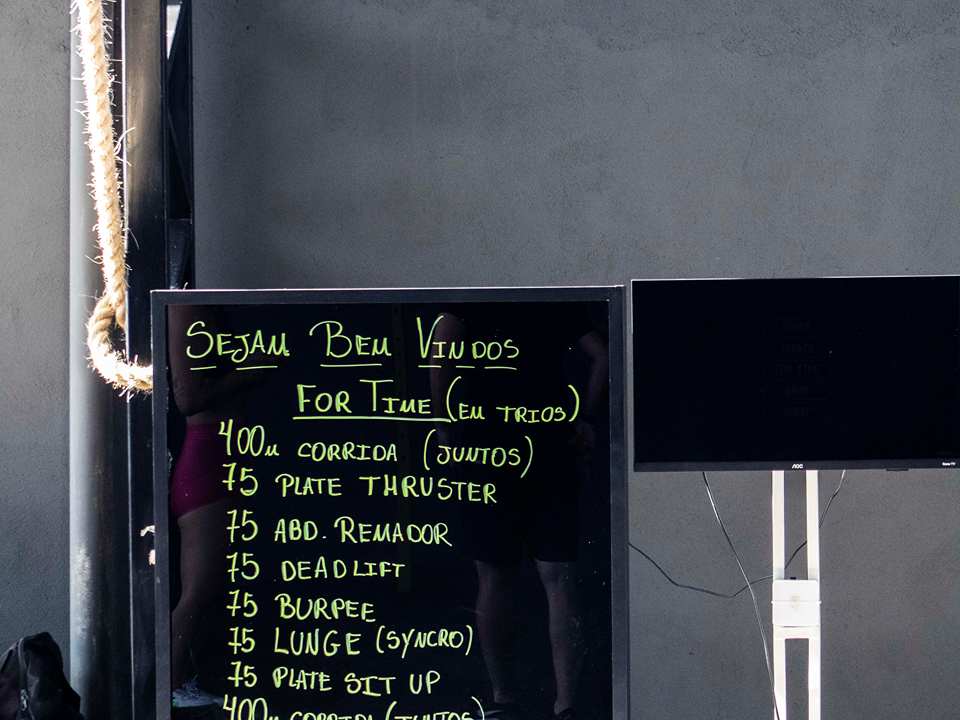 SEJAM BEM VINDOS
FOR TIME (EM TRIOS)
400m CORRIDA (JUNTOS)
75 PLATE THRUSTER
75 ABD. REMADOR
75 DEADLIFT
75 BURPEE
75 LUNGE (SYNCRO)
75 PLATE SIT UP
400m CORRIDA (JUNTOS)
AOC
Roku TV